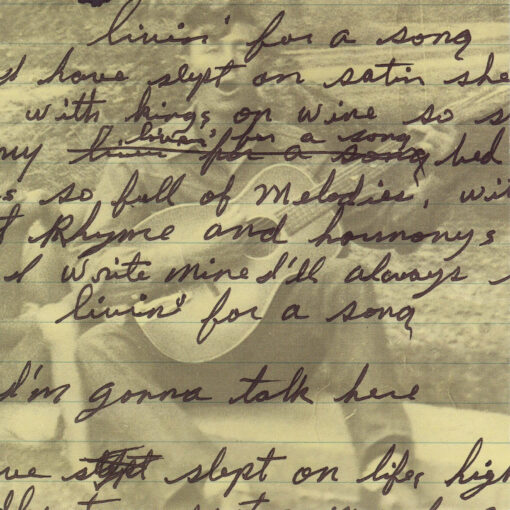 livin' for a song
I'd have slept on satin she
with kings on wine so s
livin' for a song
my livin' for a song bed
so full of Melodies, wit
Rhyme and hormonys
I write mine I'll always
livin' for a song
I'm gonna talk here
slept slept on life, high